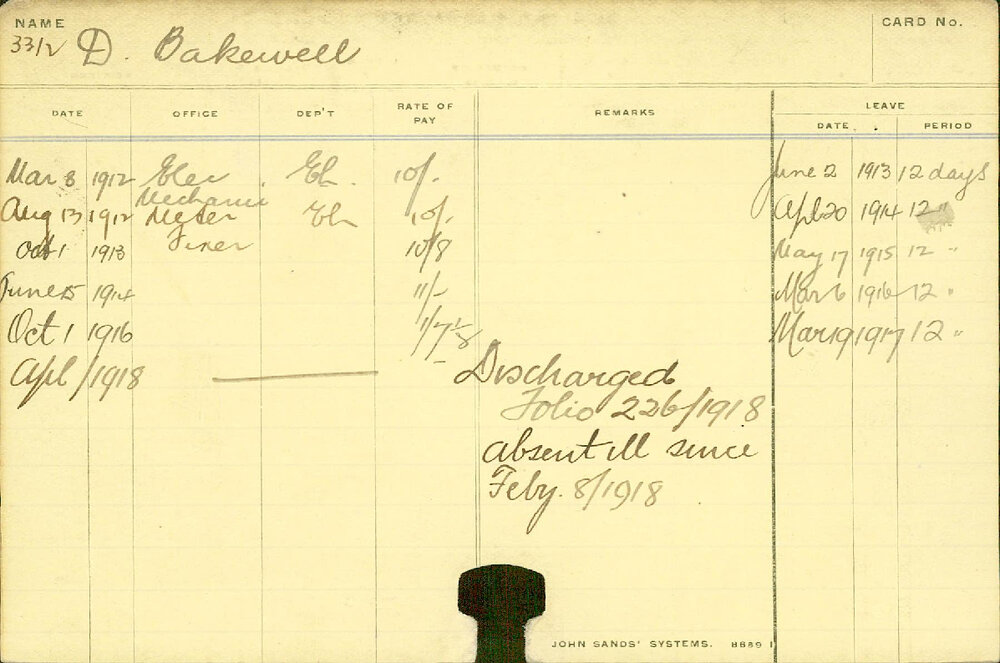 NAME
CARD No.
33/2 D. Bakewell
DATE OFFICE DEP'T RATE OF PAY REMARKS LEAVE
DATE. PERIOD
Mar 8 1912 Elec El. 10/- June 2 1913 12 days
Mechanic
Aug 13 1912 Meter El 10/- Apl 20 1914 12 "
Oct 1 1913 Fixer 10/8 May 17 1915 12 "
June 15 1914 11/- Mar 6 1916 12 "
Oct 1 1916 Mar 19 1917 12 "
Apl /1918 Discharged
Folio 226/1918
absent ill since
Feby. 8/1918
JOHN SANDS' SYSTEMS. 8689